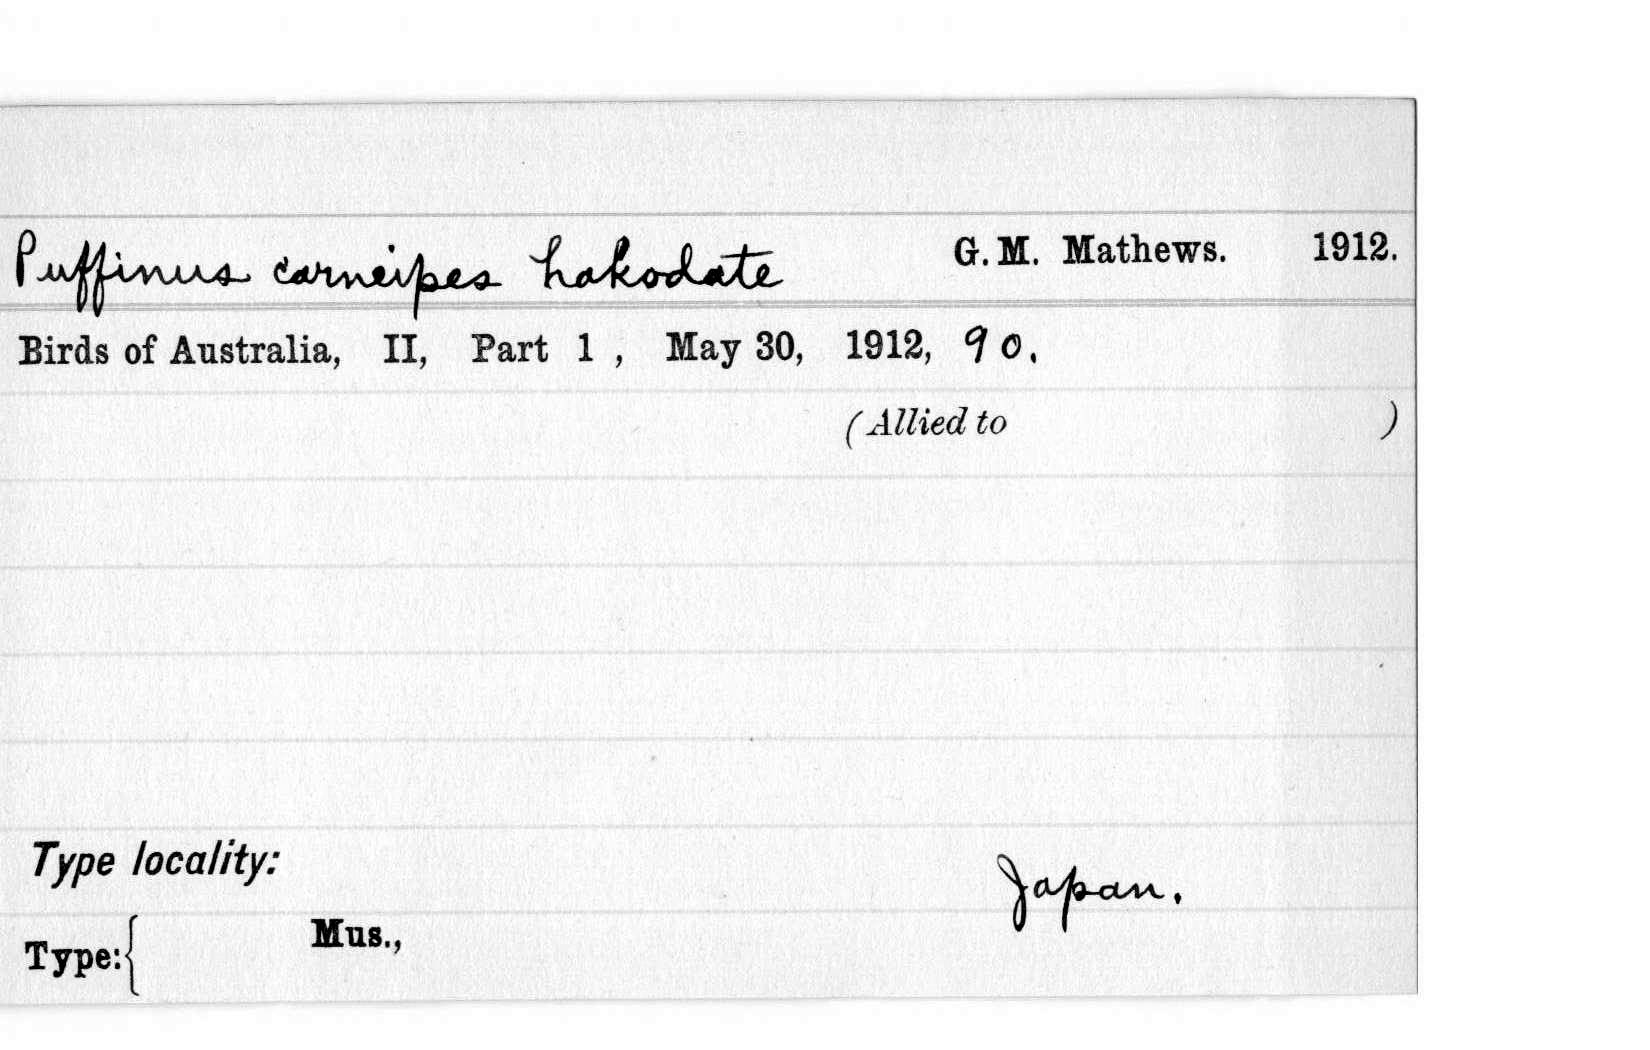 Puffinus carneipes hakodate G. M. Mathews. 1912.
Birds of Australia, II, Part 1, May 30, 1912, 90.
(Allied to )
Type locality: Japan.
Type:{ Mus.,